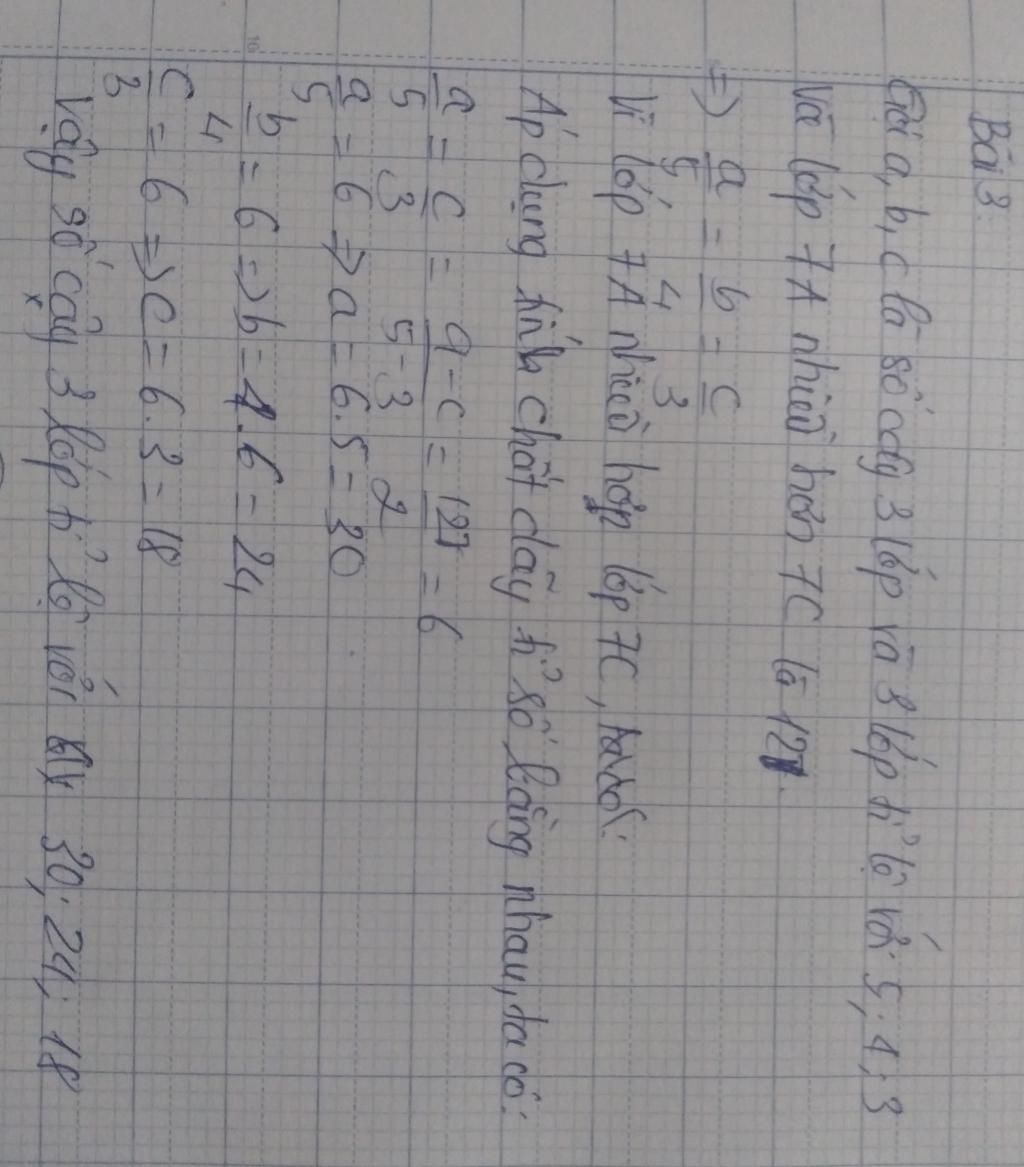 Bài 3.
Gọi a, b, c là số cây 3 lớp và 3 lớp tỉ lệ với 5; 4; 3
Và lớp 7A nhiều hơn 7C là 12.
=> a/5 = b/4 = c/3
Vì lớp 7A nhiều hơn lớp 7C, ta có:
Áp dụng tính chất dãy tỉ số bằng nhau, ta có:
a/5 = c/3 = a-c/5-3 = 12/2 = 6
a/5 = 6 => a = 6.5 = 30
b/4 = 6 => b = 4.6 = 24
c/3 = 6 => c = 6.3 = 18
Vậy số cây 3 lớp tỉ lệ với 30; 24; 18